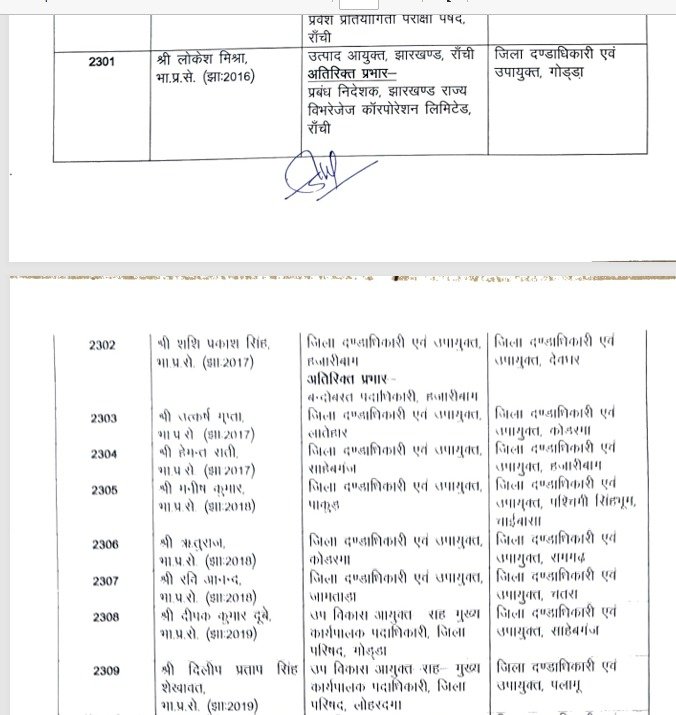 प्रवेश प्रतियोगिता परीक्षा पर्षद,
राँची
2301 श्री लोकेश मिश्रा, उत्पाद आयुक्त, झारखण्ड, राँची जिला दण्डाधिकारी एवं
भा.प्र.से. (झा:2016) अतिरिक्त प्रभार– उपायुक्त, गोड्डा
प्रबंध निदेशक, झारखण्ड राज्य
विभरेजेज कॉरपोरेशन लिमिटेड,
राँची
2302 श्री शशि प्रकाश सिंह, जिला दण्डाधिकारी एवं उपायुक्त, जिला दण्डाधिकारी एवं
भा.प्र.से. (झा:2017) हजारीबाग उपायुक्त, देवघर
अतिरिक्त प्रभार -
बन्दोबस्त पदाधिकारी, हजारीबाग
2303 श्री उत्कर्ष गुप्ता, जिला दण्डाधिकारी एवं उपायुक्त, जिला दण्डाधिकारी एवं
भा.प्र.से. (झा:2017) लातेहार उपायुक्त, कोडरमा
2304 श्री हेमन्त सती, जिला दण्डाधिकारी एवं उपायुक्त, जिला दण्डाधिकारी एवं
भा.प्र.से. (झा:2017) साहेबगंज उपायुक्त, हजारीबाग
2305 श्री मनीष कुमार, जिला दण्डाधिकारी एवं उपायुक्त, जिला दण्डाधिकारी एवं
भा.प्र.से. (झा:2018) पाकुड़ उपायुक्त, पश्चिमी सिंहभूम,
चाईबासा
2306 श्री ऋतुराज, जिला दण्डाधिकारी एवं उपायुक्त, जिला दण्डाधिकारी एवं
भा.प्र.से. (झा:2018) कोडरमा उपायुक्त, रामगढ़
2307 श्री रवि आनन्द, जिला दण्डाधिकारी एवं उपायुक्त, जिला दण्डाधिकारी एवं
भा.प्र.से. (झा:2018) जामताड़ा उपायुक्त, चतरा
2308 श्री दीपक कुमार दूबे, उप विकास आयुक्त सह मुख्य जिला दण्डाधिकारी एवं
भा.प्र.से. (झा:2019) कार्यपालक पदाधिकारी, जिला उपायुक्त, साहेबगंज
परिषद, गोड्डा
2309 श्री दिलीप प्रताप सिंह उप विकास आयुक्त-सह- मुख्य जिला दण्डाधिकारी एवं
शेखावत, कार्यपालक पदाधिकारी, जिला उपायुक्त, पलामू
भा.प्र.से. (झा:2019) परिषद, लोहरदगा